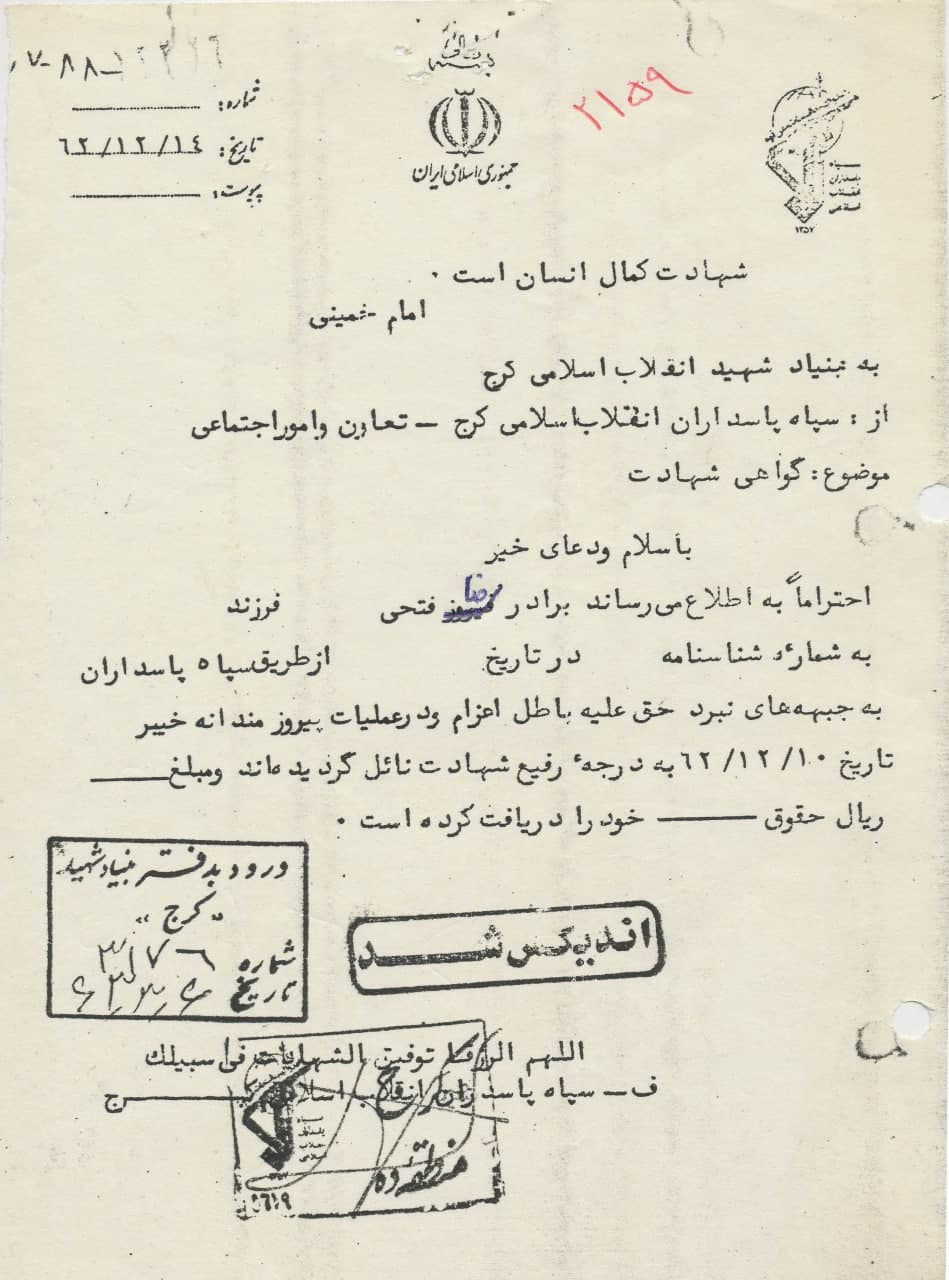 بسمه تعالی
جمهوری اسلامی ایران
۲۱۵۹
سپاه پاسداران انقلاب اسلامی
۱۳۵۷
شماره:
تاریخ: ۶۲/۱۲/۱۴
پیوست:
شهادت کمال انسان است .
امام خمینی
به بنیاد شهید انقلاب اسلامی کرج
از : سپاه پاسداران انقلاب اسلامی کرج – تعاون و امور اجتماعی
موضوع : گواهی شهادت
باسلام ودعای خیر
احتراماً به اطلاع می‌رساند برادر رضا فتحی فرزند
به شمارهٔ شناسنامه در تاریخ از طریق سپاه پاسداران
به جبهه‌های نبرد حق علیه باطل اعزام ودرعملیات پیروزمندانه خیبر
تاریخ ۶۲/۱۲/۱۰ به درجهٔ رفیع شهادت نائل گردیده‌اند ومبلغ
ریال حقوق خود را دریافت کرده است .
ورود بدفتر بنیاد شهید
"کرج"
شماره ۳۱۷۶
تاریخ
اندیکس شد
اللهم الرزقنا توفیق الشهادت فی سبیلك
ف – سپاه پاسداران انقلاب اسلامی کرج
منطقه ده